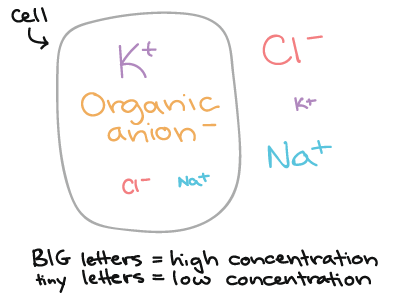 cell
K+
Organic
anion−
Cl− Na+
Cl−
K+
Na+
BIG letters = high concentration
tiny letters = low concentration